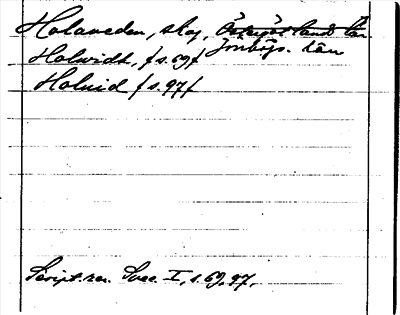 Holaveden, skog, Östergötlands län
Jönköps. län
Holwidh, / s. 69 /
Holuid / s. 97 /
Script. rer. Svec. I, s. 69, 97.